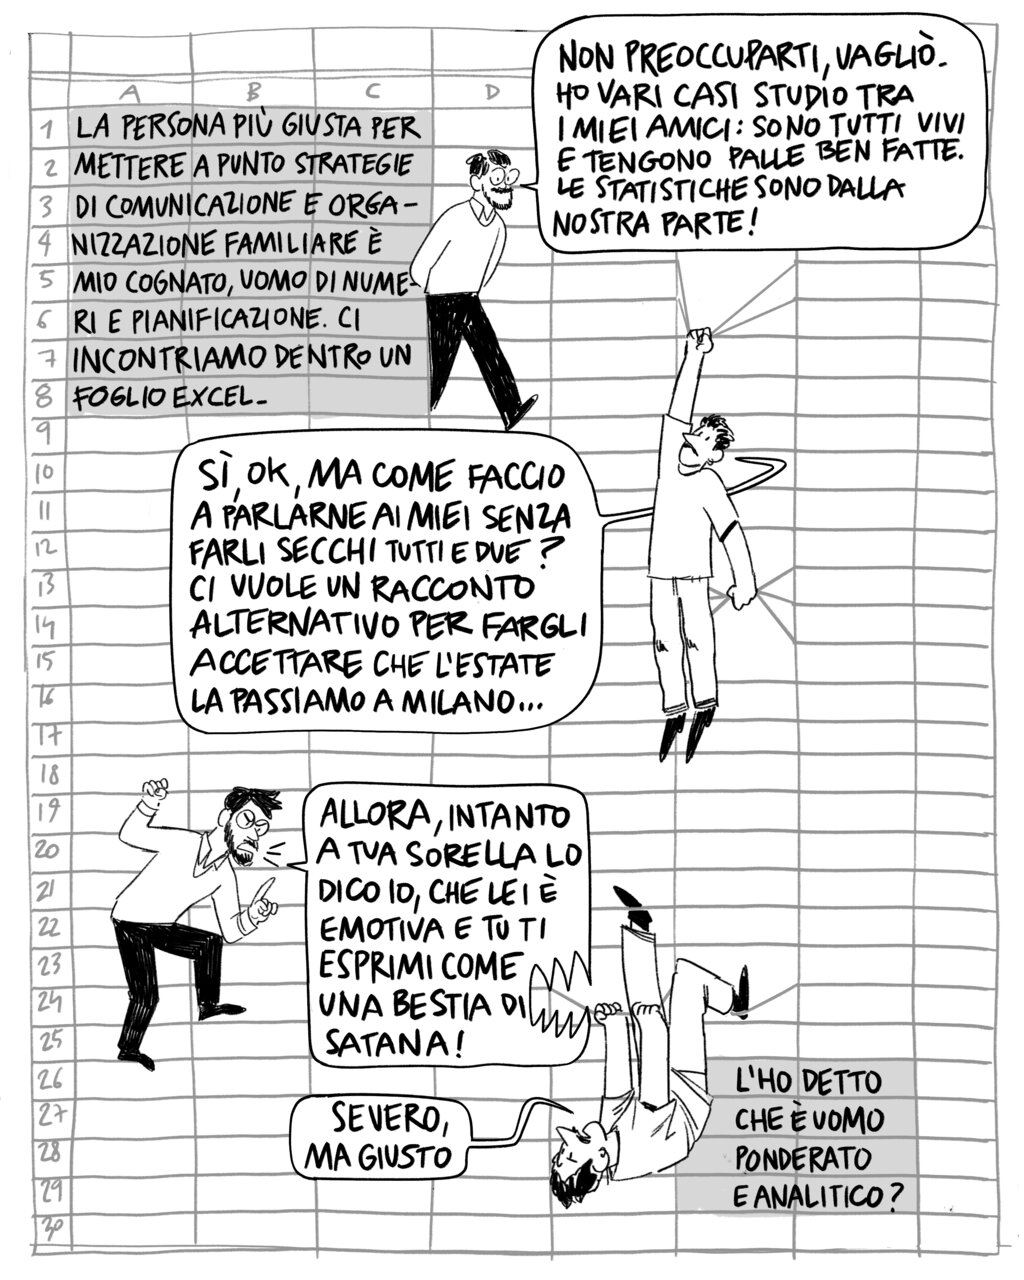 A B C D
1 LA PERSONA PIÙ GIUSTA PER
2 METTERE A PUNTO STRATEGIE
3 DI COMUNICAZIONE E ORGA-
4 NIZZAZIONE FAMILIARE È
5 MIO COGNATO, UOMO DI NUME-
6 RI E PIANIFICAZIONE. CI
7 INCONTRIAMO DENTRO UN
8 FOGLIO EXCEL_
NON PREOCCUPARTI, VAGLIÒ_
HO VARI CASI STUDIO TRA
I MIEI AMICI: SONO TUTTI VIVI
E TENGONO PALLE BEN FATTE.
LE STATISTICHE SONO DALLA
NOSTRA PARTE!
9
10
11
12
13
14
15
16
17
SÌ, OK, MA COME FACCIO
A PARLARNE AI MIEI SENZA
FARLI SECCHI TUTTI E DUE?
CI VUOLE UN RACCONTO
ALTERNATIVO PER FARGLI
ACCETTARE CHE L'ESTATE
LA PASSIAMO A MILANO...
18
19
20
21
22
23
24
25
ALLORA, INTANTO
A TUA SORELLA LO
DICO IO, CHE LEI È
EMOTIVA E TU TI
ESPRIMI COME
UNA BESTIA DI
SATANA!
26
27
28
29
30
SEVERO,
MA GIUSTO
L'HO DETTO
CHE È UOMO
PONDERATO
E ANALITICO?